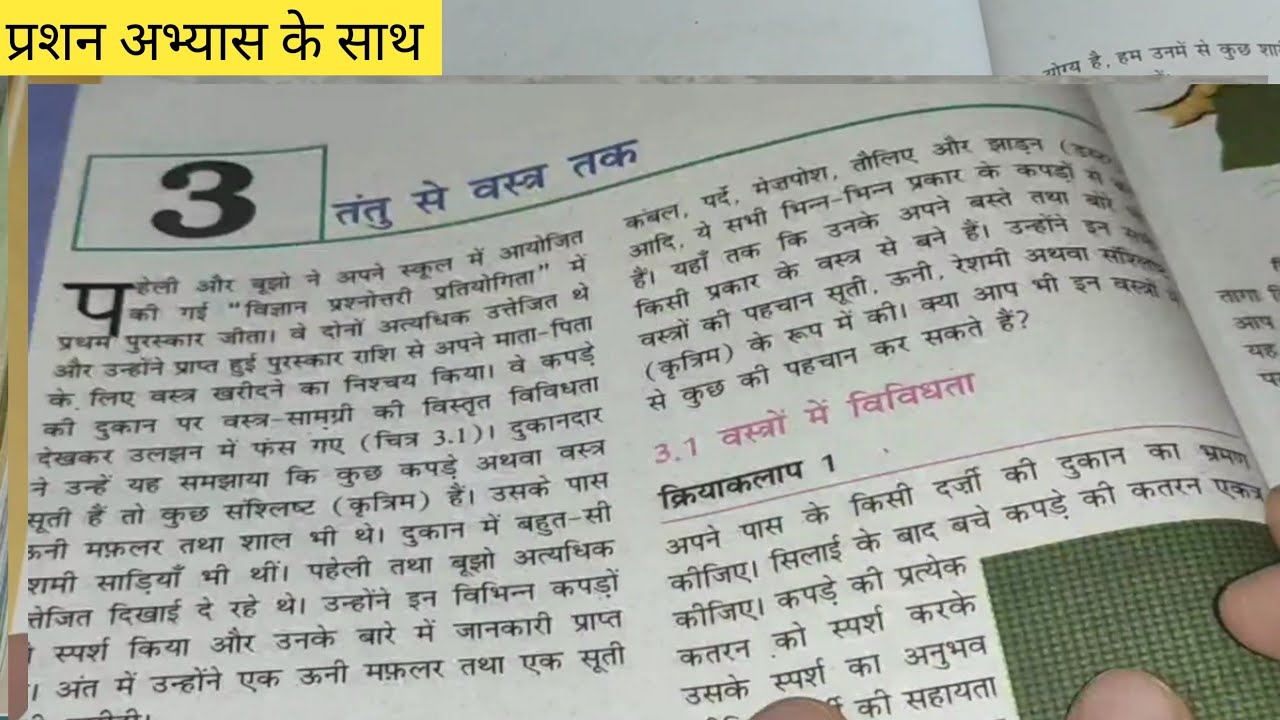 प्रशन अभ्यास के साथ
योग्य है, हम उनमें से कुछ
3
तंतु से वस्त्र तक
पहेली और बूझो ने अपने स्कूल में आयोजित
की गई "विज्ञान प्रश्नोत्तरी प्रतियोगिता" में
प्रथम पुरस्कार जीता। वे दोनों अत्यधिक उत्तेजित थे
और उन्होंने प्राप्त हुई पुरस्कार राशि से अपने माता-पिता
के लिए वस्त्र खरीदने का निश्चय किया। वे कपड़े
की दुकान पर वस्त्र-सामग्री की विस्तृत विविधता
देखकर उलझन में फंस गए (चित्र 3.1)। दुकानदार
ने उन्हें यह समझाया कि कुछ कपड़े अथवा वस्त्र
सूती हैं तो कुछ संश्लिष्ट (कृत्रिम) हैं। उसके पास
ऊनी मफ़लर तथा शाल भी थे। दुकान में बहुत-सी
शमी साड़ियाँ भी थीं। पहेली तथा बूझो अत्यधिक
तेजित दिखाई दे रहे थे। उन्होंने इन विभिन्न कपड़ों
स्पर्श किया और उनके बारे में जानकारी प्राप्त
। अंत में उन्होंने एक ऊनी मफ़लर तथा एक सूती
कंबल, पर्दे, मेज़पोश, तौलिए और झाड़न
आदि, ये सभी भिन्न-भिन्न प्रकार के कपड़ों
हैं। यहाँ तक कि उनके अपने बस्ते तथा बोरे
किसी प्रकार के वस्त्र से बने हैं। उन्होंने इन
वस्त्रों की पहचान सूती, ऊनी, रेशमी अथवा
(कृत्रिम) के रूप में की। क्या आप भी इन वस्त्रों
से कुछ की पहचान कर सकते हैं?
3.1 वस्त्रों में विविधता
क्रियाकलाप 1
अपने पास के किसी दर्ज़ी की दुकान का भ्रमण
कीजिए। सिलाई के बाद बचे कपड़े की कतरन एकत्र
कीजिए। कपड़े की प्रत्येक
कतरन को स्पर्श करके
उसके स्पर्श का अनुभव
की सहायता
तागा
आप
यह